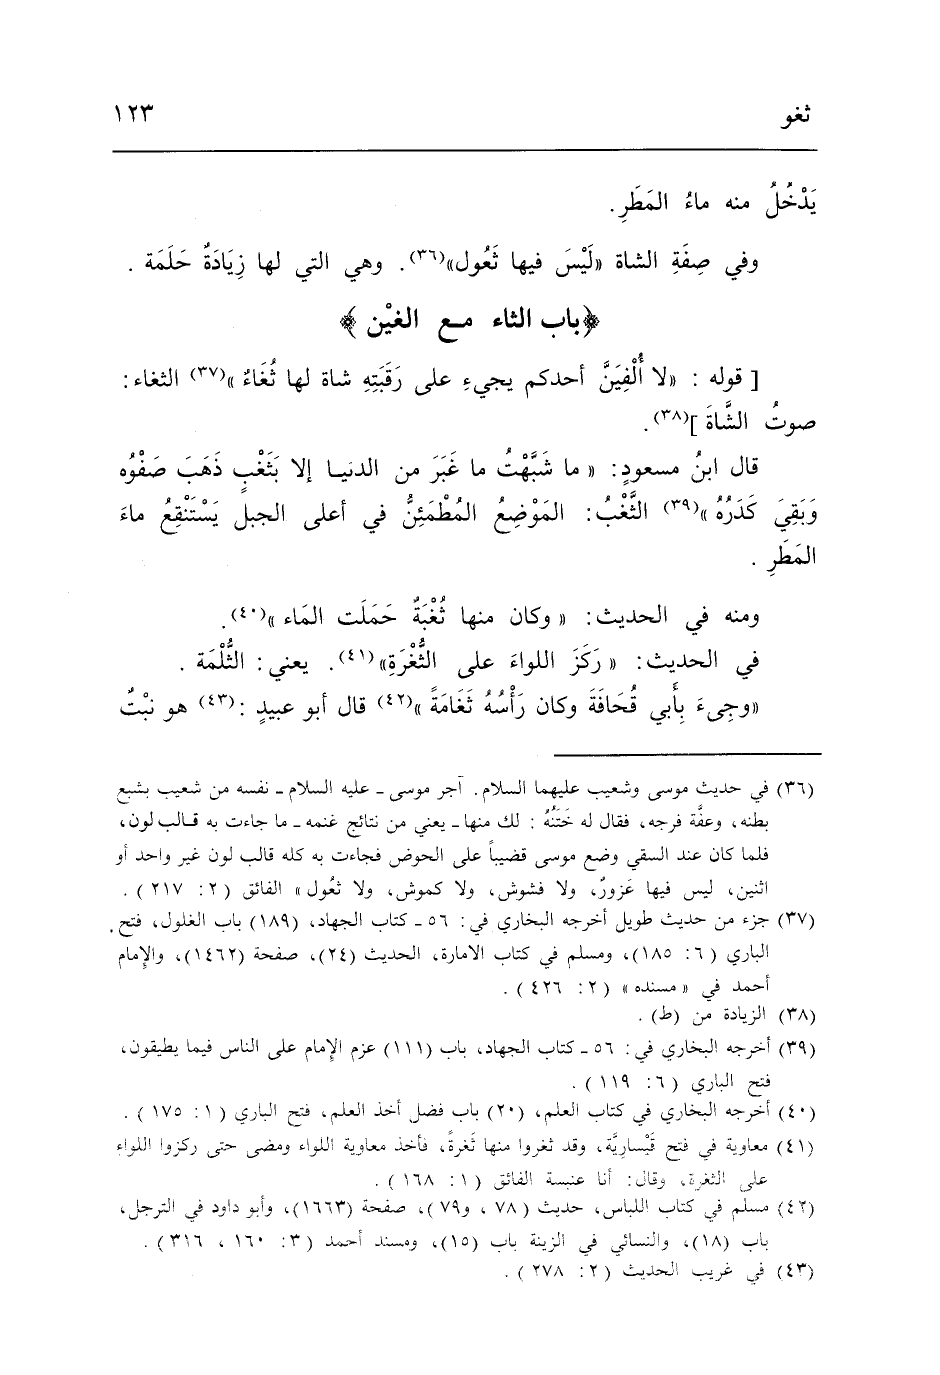 ثغو ١٢٣
يَدْخُلُ منه ماءُ المَطَرِ.
وفي صِفَةِ الشاة «لَيْسَ فيها ثَعُول»(٣٦). وهي التي لها زِيَادَةُ حَلَمَة .
﴿باب الثاء مـع الغيْن ﴾
[ قوله : «لا أُلْفِيَنَّ أحدكم يجيءِ على رَقَبَتِهِ شاة لها ثُغَاءٌ »(٣٧) الثغاء :
صوتُ الشَّاةَ ](٣٨).
قال ابنُ مسعودٍ: « ما شَبَّهْتُ ما غَبَرَ من الدنيـا إلا بَثَغْبٍ ذَهَبَ صَفْوُه
وَبَقِيَ كَدَرُهُ »(٣٩) الثَّغْبُ: المَوْضِعُ المُطْمَئِنُّ في أعلى الجبل يَسْتَنْقِعُ ماءَ
المَطَرِ .
ومنه في الحديث: « وكان منها ثُغْبَةٌ حَمَلَت المَاء »(٤٠).
في الحديث: « رَكَزَ اللواءَ على الثُّغْرَةِ»(٤١). يعني: الثُّلْمَة .
«وجِيءَ بِأَبي قُحَافَةَ وكان رَأْسُهُ ثَغَامَةً »(٤٢) قال أبو عبيدٍ :(٤٣) هو نبْتٌ
(٣٦) في حديث موسى وشعيب عليهما السلام. آجر موسى ـ عليه السلام ـ نفسه من شعيب بشبع
بطنه، وعفَّة فرجه، فقال له خَتَنُهُ : لك منها ـ يعني من نتائج غنمه ـ ما جاءت به قـالب لون،
فلما كان عند السقي وضع موسى قضيباً على الحوض فجاءت به كله قالب لون غير واحد أو
اثنين، ليس فيها عَزورٌ، ولا فشوش، ولا كموش، ولا ثعُول» الفائق ( ٢: ٢١٧ ) .
(٣٧) جزء من حديث طويل أخرجه البخاري في: ٥٦ ـ كتاب الجهاد، (١٨٩) باب الغلول، فتح
الباري ( ٦: ١٨٥)، ومسلم في كتاب الامارة، الحديث (٢٤)، صفحة (١٤٦٢)، والإمام
أحمد في « مسنده » ( ٢: ٤٢٦ ) .
(٣٨) الزيادة من (ط) .
(٣٩) أخرجه البخاري في: ٥٦ ـ كتاب الجهاد، باب (١١١) عزم الإمام على الناس فيما يطيقون،
فتح الباري ( ٦: ١١٩ ) .
(٤٠) أخرجه البخاري في كتاب العلم، (٢٠) باب فضل أخذ العلم، فتح الباري ( ١: ١٧٥ ) .
(٤١) معاوية في فتح قَيْساريَّة، وقد ثغروا منها ثَغرةً، فأخذ معاوية اللواء ومضى حتى ركزوا اللواء
على الثغرة، وقال: أنا عنبسة الفائق ( ١: ١٦٨ ) .
(٤٢) مسلم في كتاب اللباس، حديث ( ٧٨ ، و٧٩ )، صفحة (١٦٦٣)، وأبو داود في الترجل،
باب (١٨)، والنسائي في الزينة باب (١٥)، ومسند أحمد ( ٣: ١٦٠ ، ٣١٦ ) .
(٤٣) في غريب الحديث ( ٢: ٢٧٨ ) .